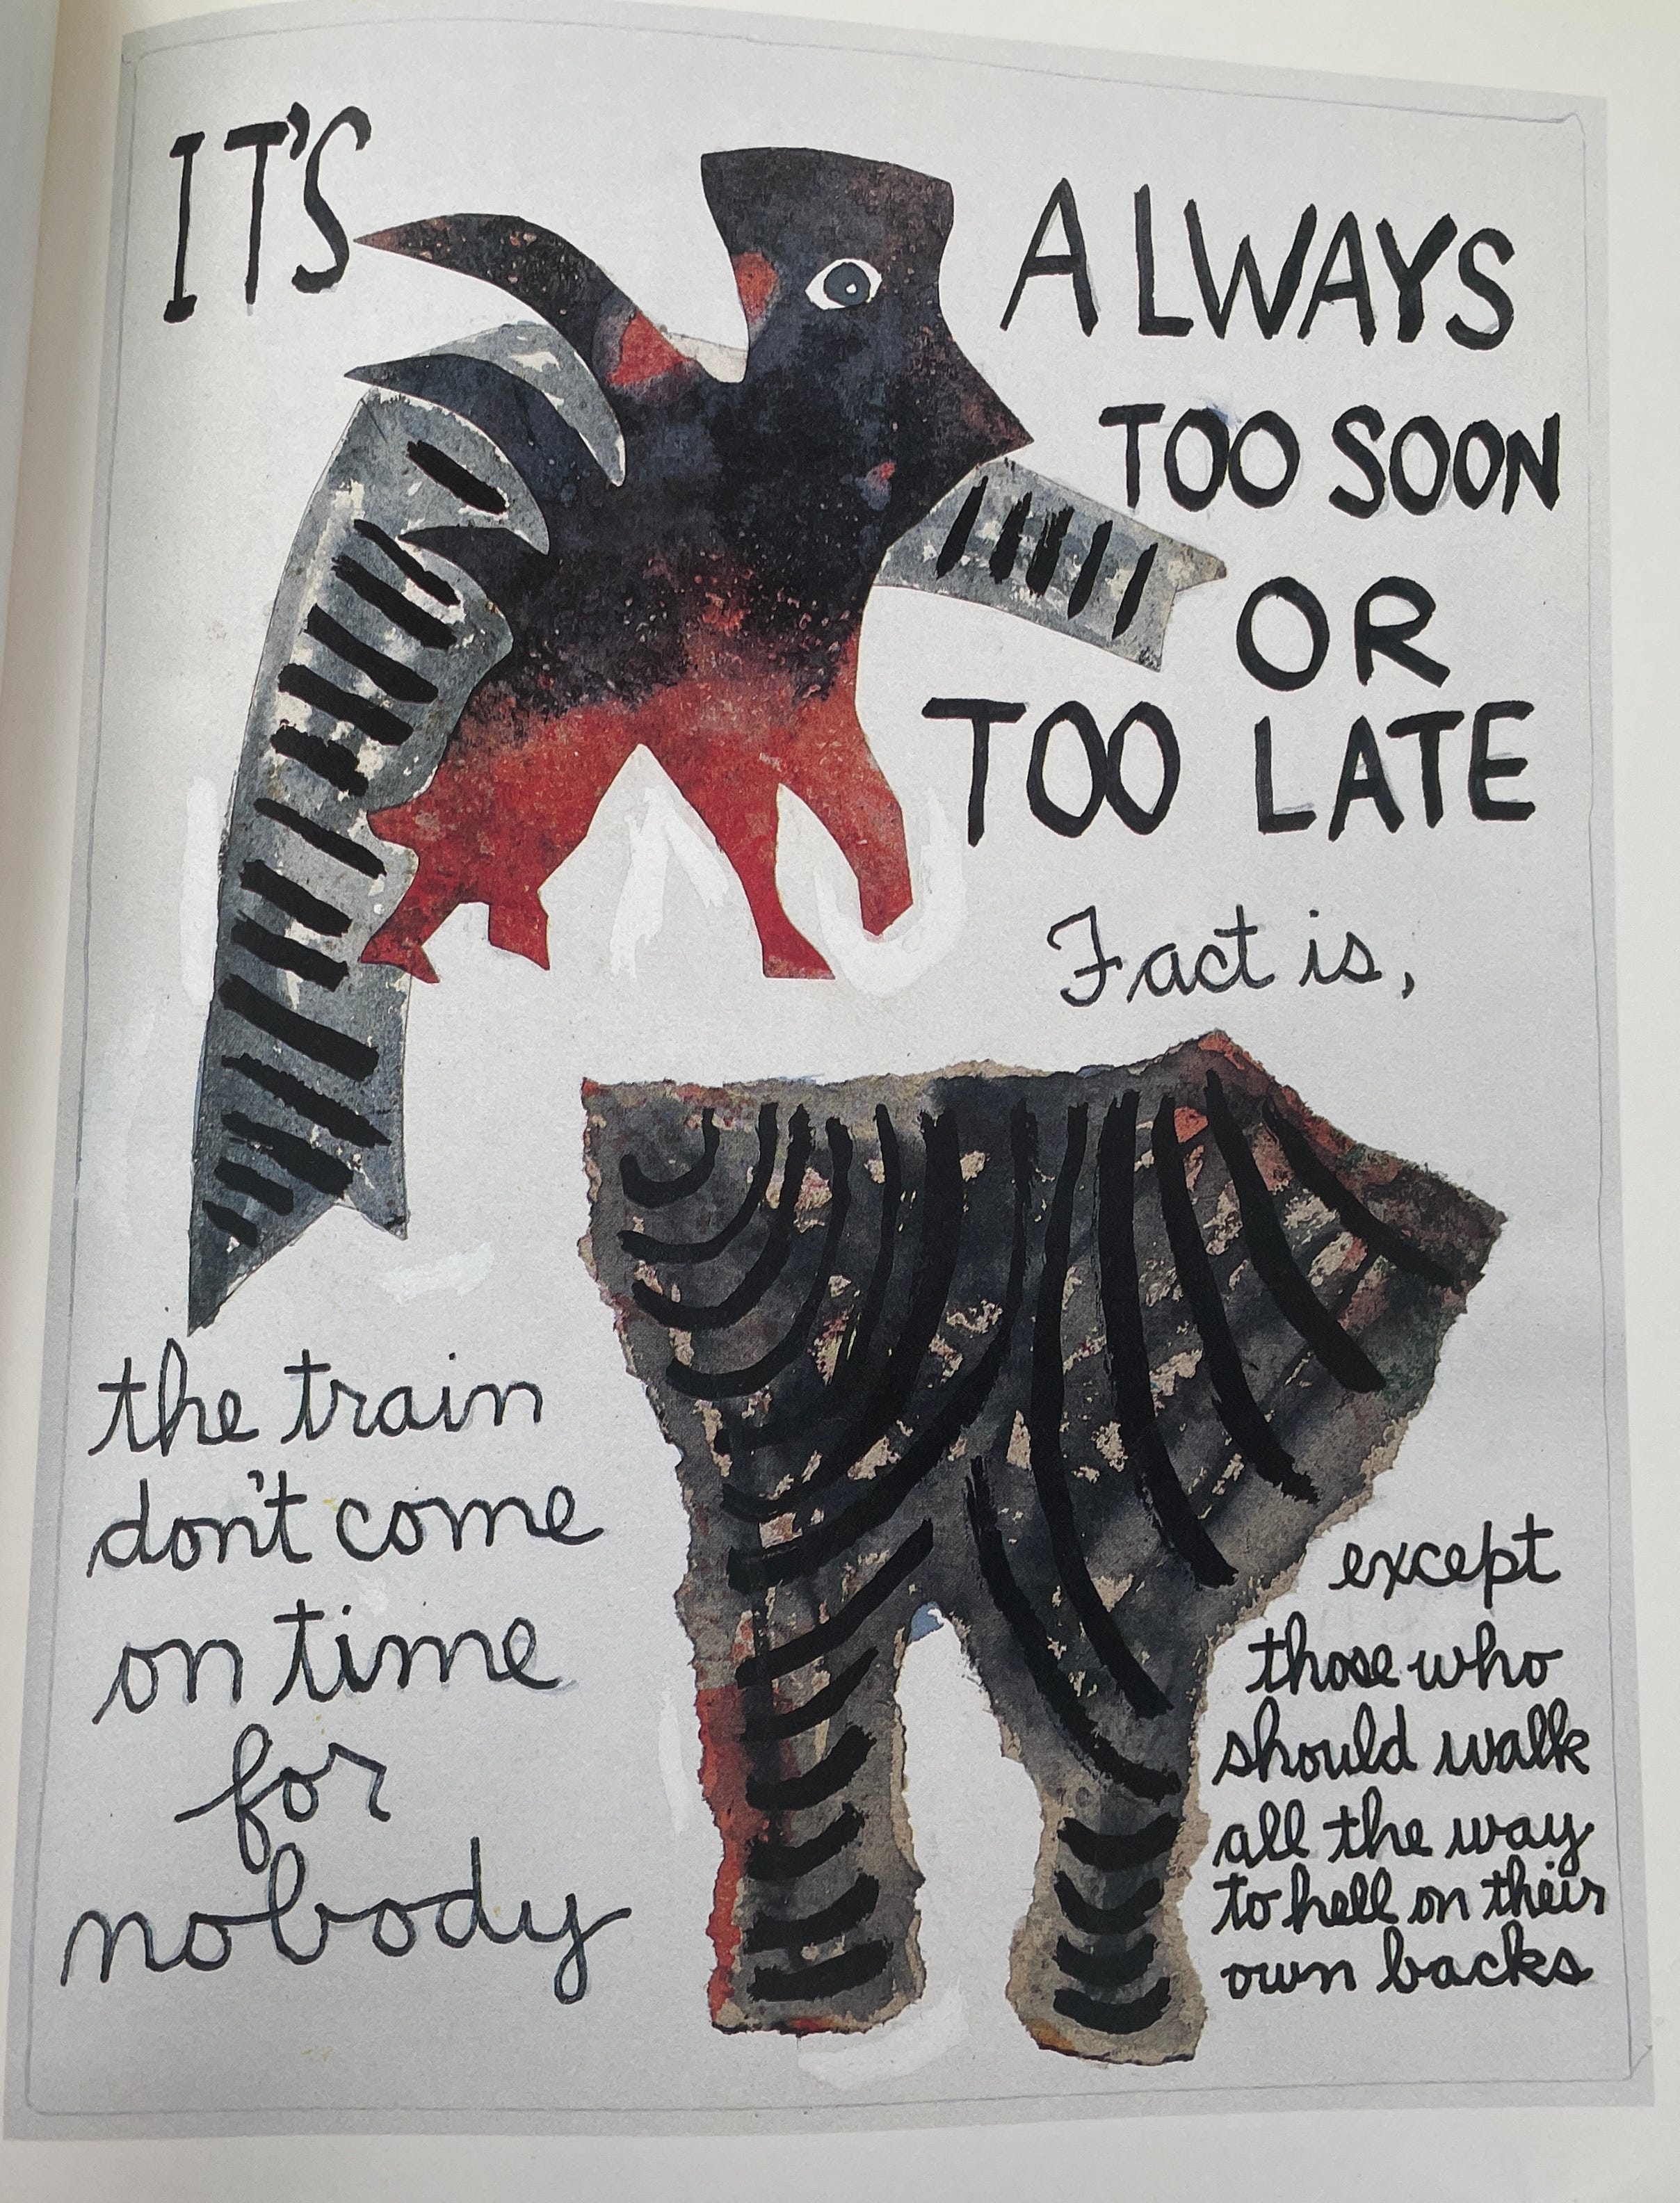 IT'S
ALWAYS
TOO SOON
OR
TOO LATE
Fact is,
the train
don't come
on time
for
nobody
except
those who
should walk
all the way
to hell on their
own backs